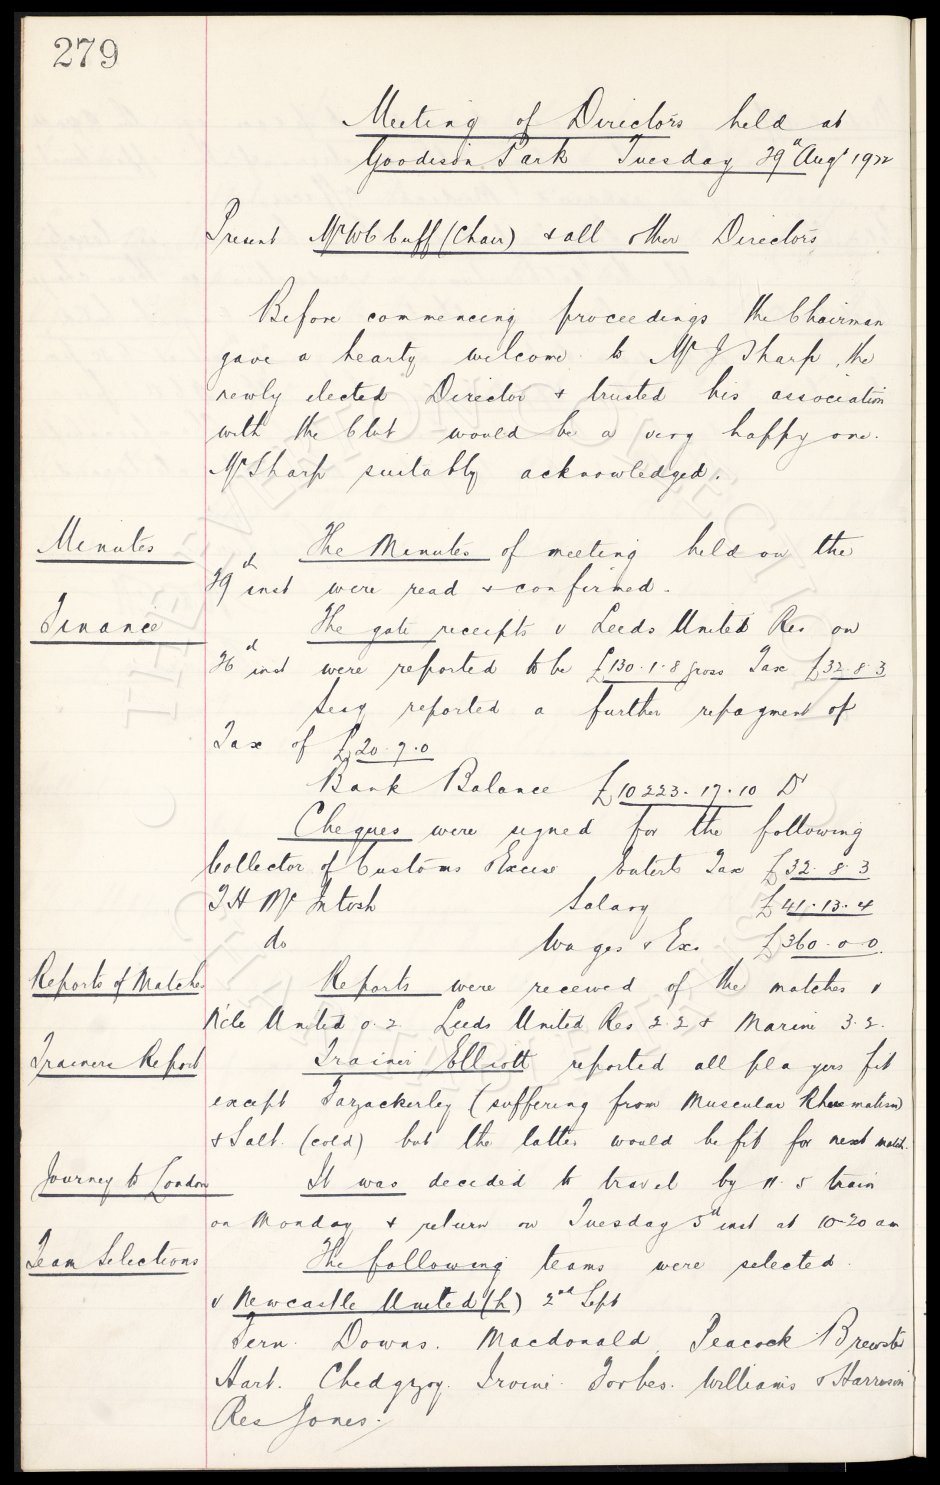 279
Meeting of Directors held at
Goodison Park Tuesday 29th Augt 1922
Present Mr W C Cuff (Chair) & all other Directors
Before commencing proceedings the Chairman
gave a hearty welcome to Mr J Sharp, the
newly elected Director & trusted his association
with the Club would be a very happy one.
Mr Sharp suitably acknowledged.
Minutes
The Minutes of meeting held on the
29th inst were read & confirmed.
Finance
The gate receipts v Leeds United Res on
26th inst were reported to be £130.1.8 gross Tax £32.8.3
Secy reported a further repayment of
Tax of £20.7.0
Bank Balance £10223.17.10 Dr
Cheques were signed for the following
Collector of Customs Excise Enterts Tax £32.8.3
T H McIntosh Salary £41.13.4
do Wages & Exs £360.0.0.
Reports of Matches
Reports were received of the matches v
N'cle United 0.2 Leeds United Res 2.2 & Marine 3.2.
Trainers Report
Trainer Elliott reported all players fit
except Fazackerley (suffering from Muscular Rheumatism)
& Salt. (cold) but the latter would be fit for next match.
Journey to London
It was decided to travel by 11.5 train
on Monday & return on Tuesday 5th inst at 10-20 am
Team Selections
The following teams were selected.
v Newcastle United (h) 2nd Sept
Fern. Downs. Macdonald. Peacock Brewster
Hart. Chedgzoy. Irvine. Forbes. Williams & Harrison
Res Jones.